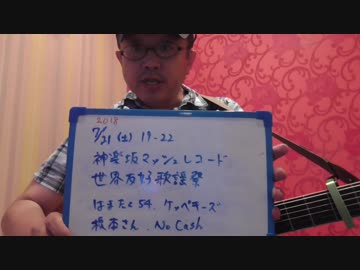 2018
7/21 (土) 19-22
神楽坂マッシュレコード
世界友好歌謡祭
はまたく54. ケッペキーズ
坂本さん. No Cash